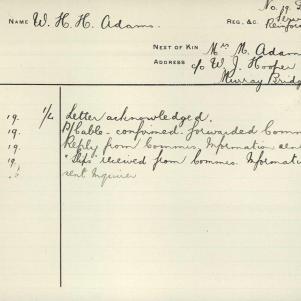 No. 19. 
NAME W. H. H. Adams.
REG., &C.
Reinfo
NEXT OF KIN Mrs M. Adam
ADDRESS c/o W. J. Hooper
Murray Bridg
19. 1/4 Letter acknowledged.
19. B/Cable - confirmed. forwarded Comm
19. Reply from Commis. Information
19. received from Commis. Informatio
sent Inquirer